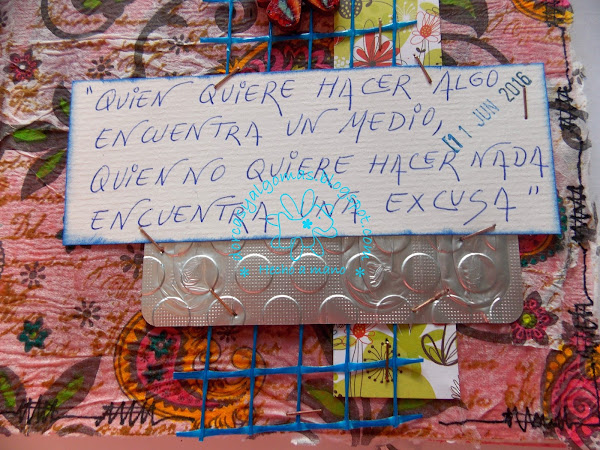 "QUIEN QUIERE HACER ALGO
ENCUENTRA UN MEDIO,
QUIEN NO QUIERE HACER NADA
ENCUENTRA UNA EXCUSA"
11 JUN 2016
* Hecho a mano *